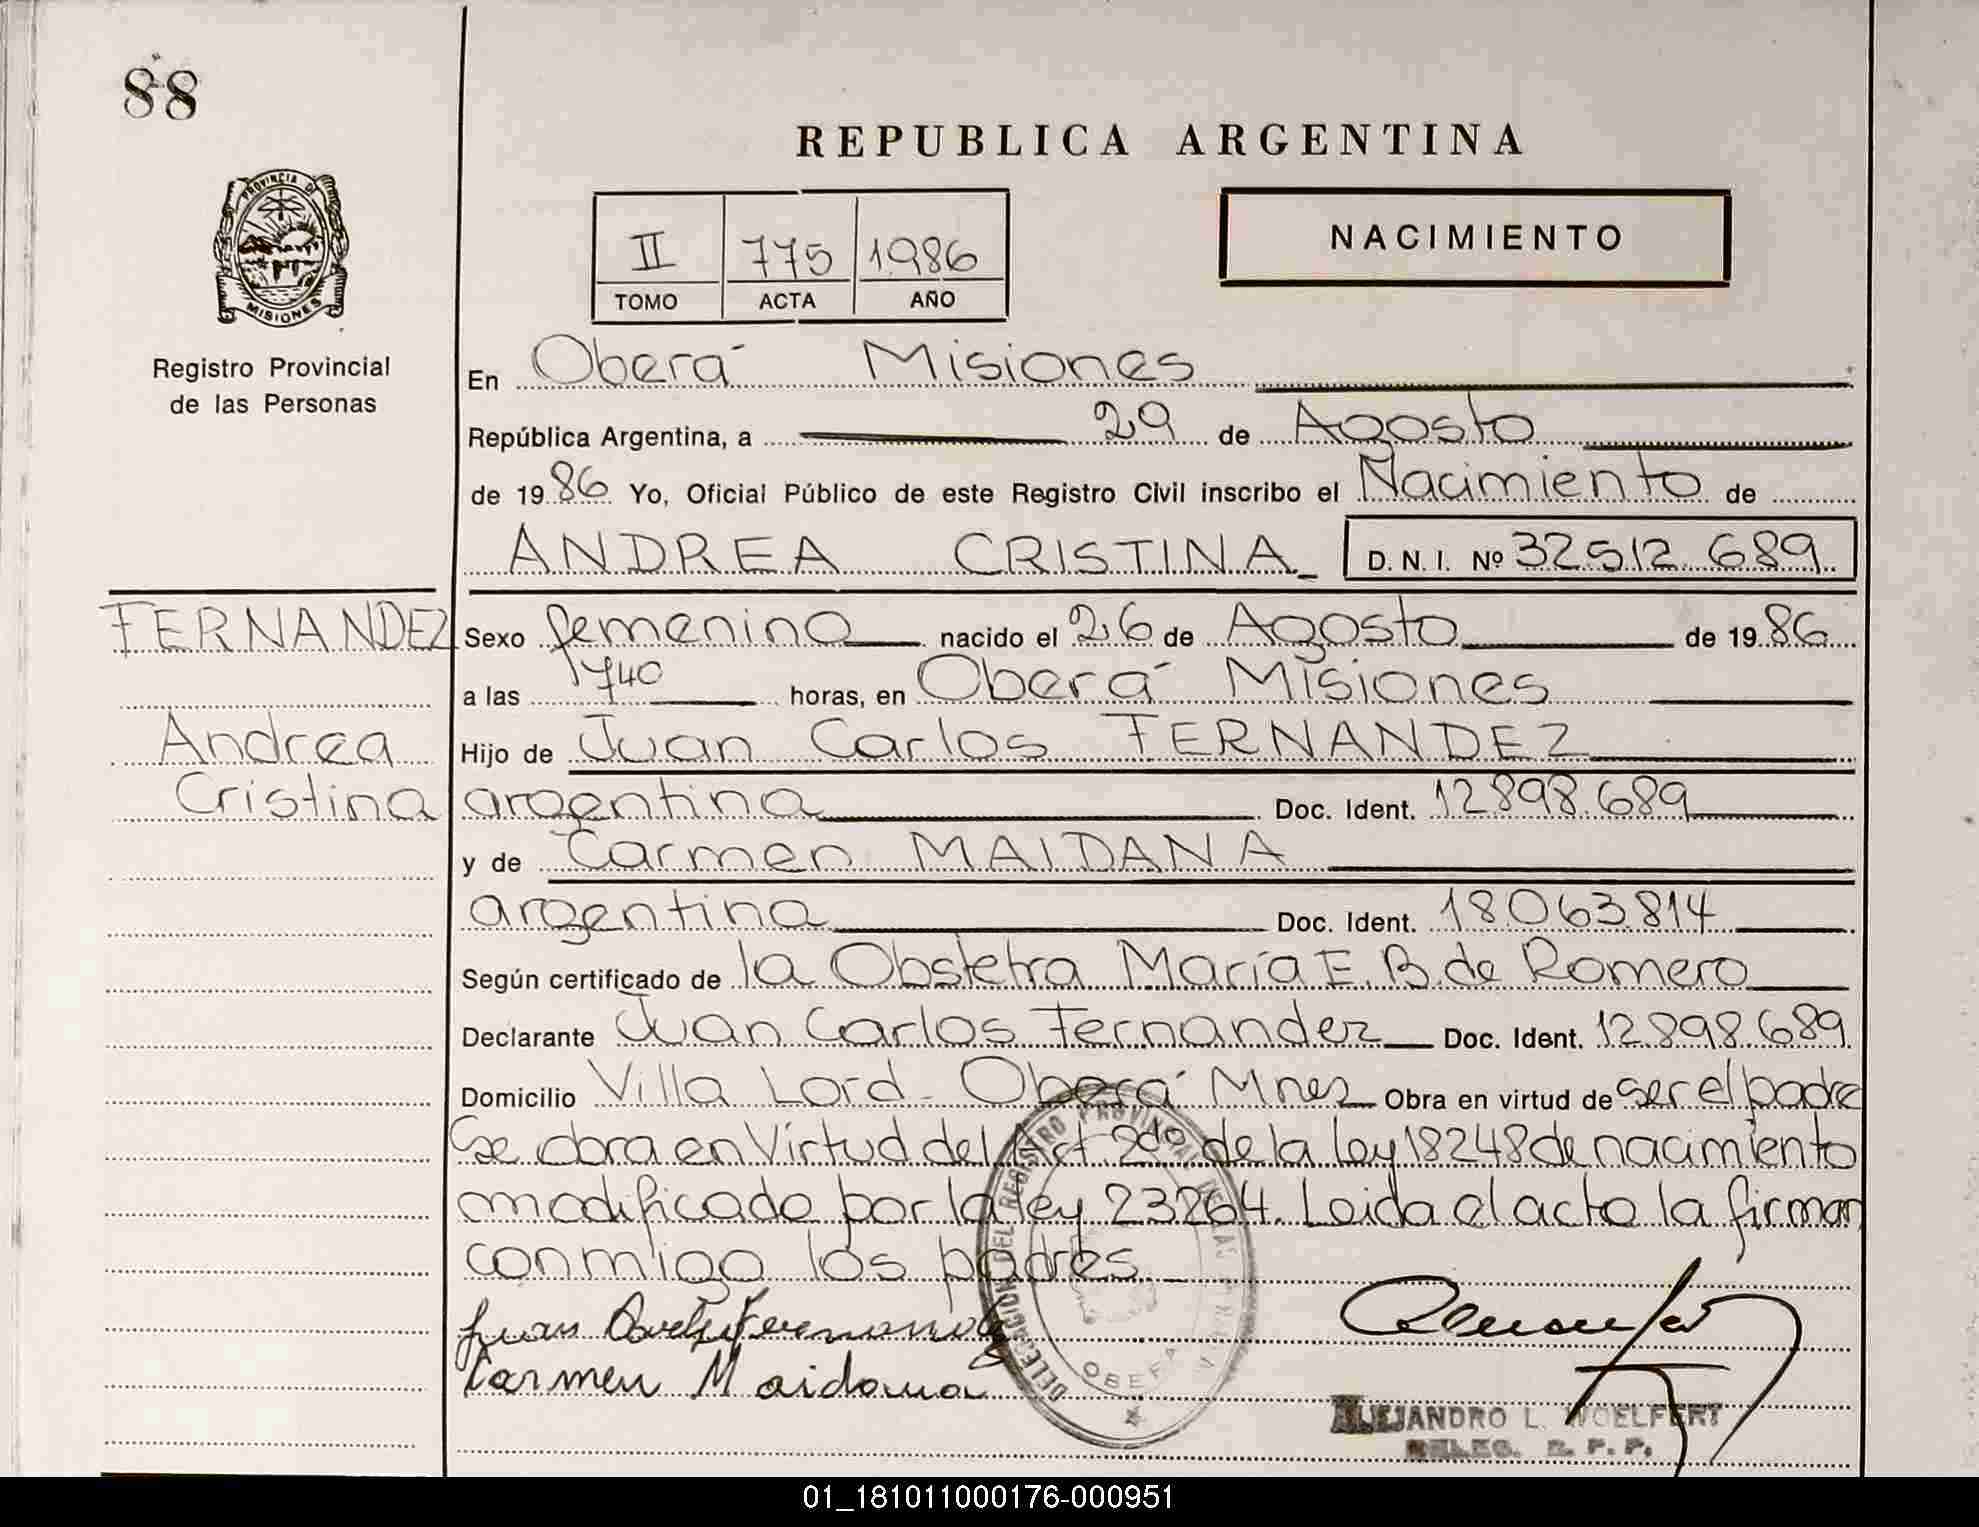 88
REPUBLICA ARGENTINA
PROVINCIA DE
MISIONES
Registro Provincial
de las Personas
II 775 1986
TOMO ACTA AÑO
NACIMIENTO
En Oberá Misiones
República Argentina, a 29 de Agosto
de 1986 Yo, Oficial Público de este Registro Civil inscribo el Nacimiento de
ANDREA CRISTINA D. N. I. Nº 32.512.689
FERNANDEZ
Andrea
Cristina
Sexo femenino nacido el 26 de Agosto de 1986
a las 1740 horas, en Oberá Misiones
Hijo de Juan Carlos FERNANDEZ
argentina Doc. Ident. 12.898.689
y de Carmen MAIDANA
argentina Doc. Ident. 18.063.814
Según certificado de la Obstetra María E. B. de Romero
Declarante Juan Carlos Fernandez Doc. Ident. 12.898.689
Domicilio Villa Lord - Oberá Mnes Obra en virtud de ser el padre
Se obra en Virtud del Art 2do de la ley 18248 de nacimiento
modificado por la ley 23264. Leida el acto la firman
conmigo los padres
Juan Carlos Fernandez
Carmen Maidana
DELEGACION DEL REGISTRO PROVINCIAL DE LAS
OBERA
ALEJANDRO L. WOELFERT
DELEG. R. P. P.
01_181011000176-000951